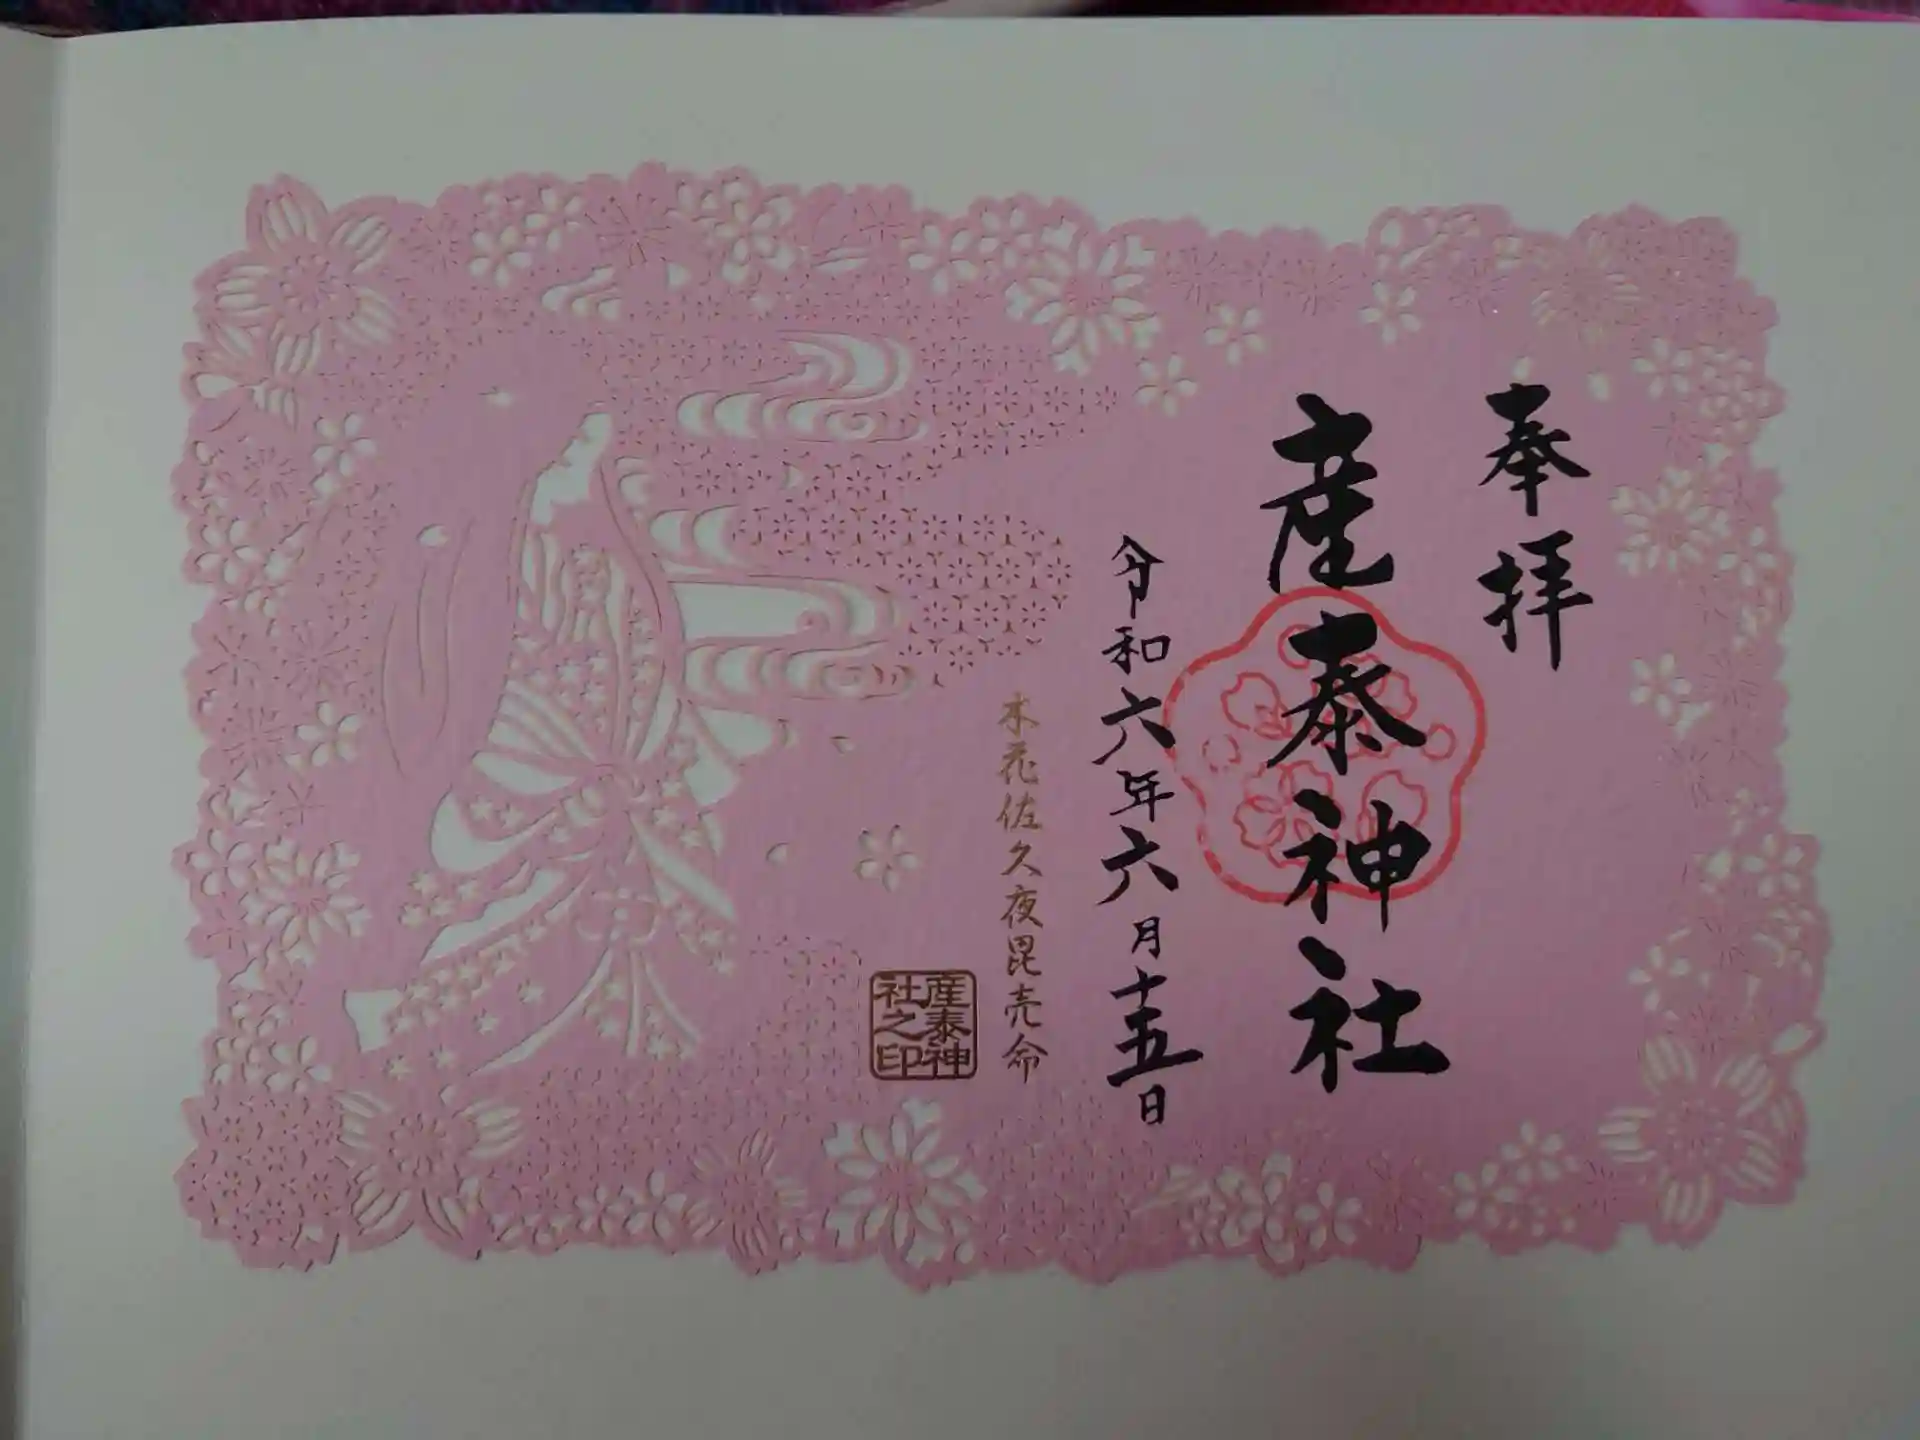 奉拝
産泰神社
令和六年六月十五日
木花佐久夜毘売命
産泰神
社之印